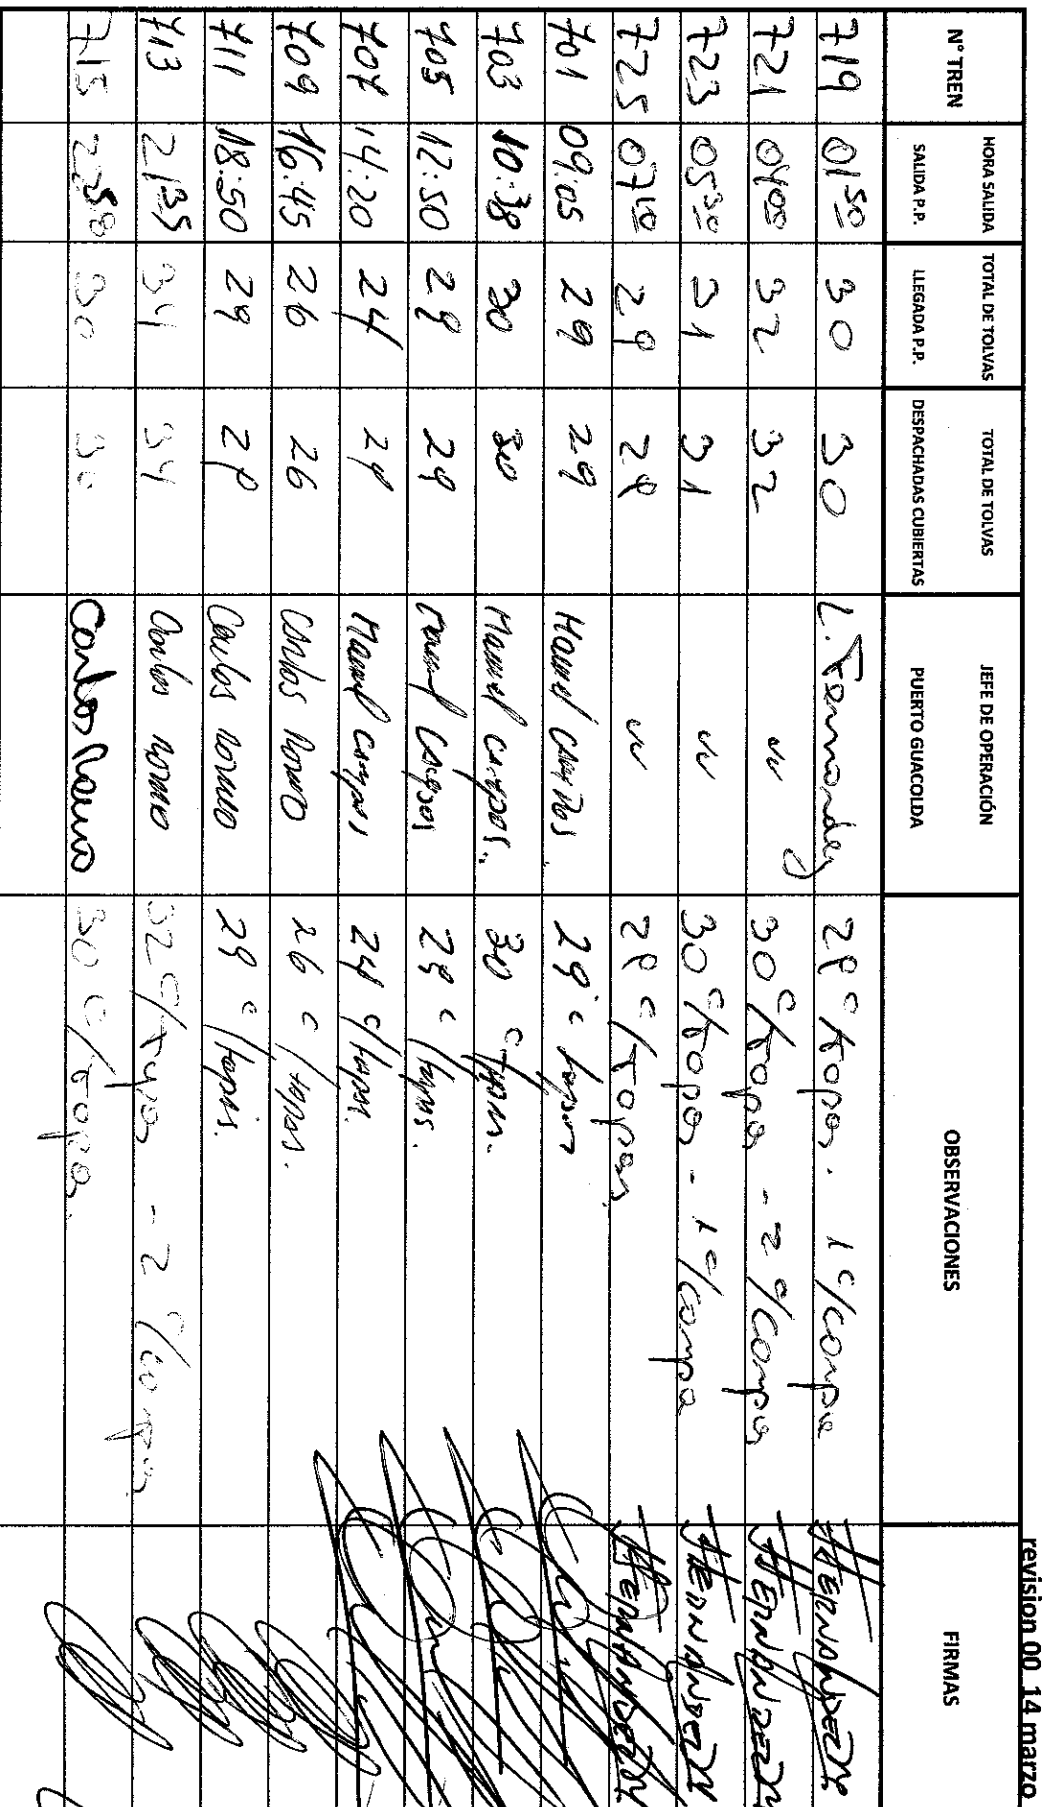 revision 00 14 marzo
N° TREN HORA SALIDA SALIDA P.P. TOTAL DE TOLVAS LLEGADA P.P. TOTAL DE TOLVAS DESPACHADAS CUBIERTAS JEFE DE OPERACIÓN PUERTO GUACOLDA OBSERVACIONES FIRMAS
719 01:50 30 30 L. Fernandez 29 c/tapa. 1 c/carpa HERNANDEZ
721 04:00 32 32 " 30 c/tapa - 2 c/carpa HERNANDEZ
723 05:30 31 31 " 30 c/tapa - 1 c/carpa HERNANDEZ
725 07:10 29 29 " 29 c/tapas HERNANDEZ
701 09:05 29 29 Manuel Campos. 29 c
703 10:38 30 30 Manuel Campos. 30 c/tapas.
705 12:50 29 29 Manuel Campos 29 c/tapas.
707 14:20 24 24 Manuel Campos 24 c/tapas.
709 16:45 26 26 Carlos Romo 26 c/tapas.
711 18:50 29 29 Carlos Romo 29 c/tapas.
713 21:35 34 34 Carlos Romo 32 c/tapa - 2 c/carpa
715 30 30 Carlos Romo 30 c/tapa.